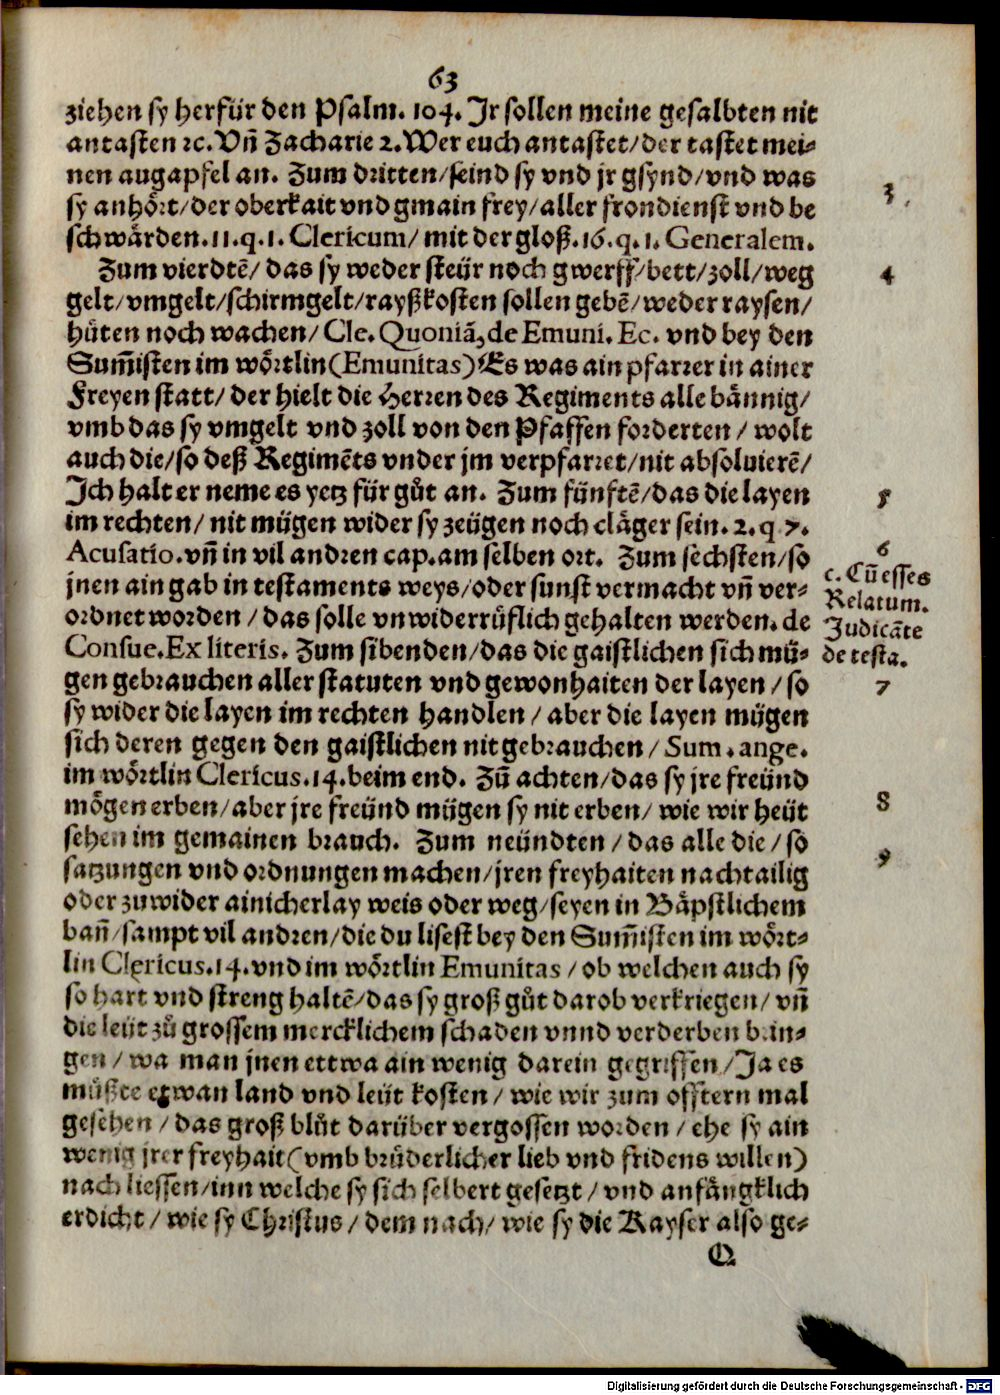 63
ziehen sy herfür den Psalm. 104. Jr sollen meine gesalbten nit
antasten ꝛc. Vñ Zacharie 2. Wer euch antastet/der tastet mei⸗
nen augapfel an. Zum dritten/seind sy vnd jr gsynd/vnd was
sy anhoͤrt/der oberkait vnd gmain frey/aller frondienst vnd be
schwaͤrden. 11. q. 1. Clericum/ mit der gloß. 16. q. 1. Generalem.
3
Zum vierdtẽ/ das sy weder steür noch gwerff/bett/zoll/weg
4
gelt/vmgelt/schirmgelt/rayßkosten sollen gebẽ/weder raysen/
huͤten noch wachen/ Cle. Quoniã, de Emuni. Ec. vnd bey den
Sum̃isten im woͤrtlin (Emunitas) Es was ain pfarrer in ainer
Freyen statt/ der hielt die Herren des Regiments alle baͤnnig/
vmb das sy vmgelt vnd zoll von den Pfaffen forderten/ wolt
auch die/so deß Regimẽts vnder jm verpfarret/nit absoluierẽ/
Jch halt er neme es yetz für guͦt an. Zum fünftẽ/das die layen
5
im rechten/ nit mügen wider sy zeügen noch claͤger sein. 2. q 7.
Acusatio. vñ in vil andren cap. am selben ort. Zum sechsten/so
6
jnen ain gab in testaments weys/oder sunst vermacht vñ ver⸗
c. Cũ esses
Relatum.
ordnet worden/ das solle vnwiderrüflich gehalten werden. de
Judicãte
Consue. Ex literis. Zum sibenden/das die gaistlichen sich mü⸗
de testa.
gen gebrauchen aller statuten vnd gewonhaiten der layen/ so
7
sy wider die layen im rechten handlen/ aber die layen mügen
sich deren gegen den gaistlichen nit gebrauchen/ Sum. ange.
im woͤrtlin Clericus. 14. beim end. Zũ achten/das sy jre freünd
moͤgen erben/aber jre freünd mügen sy nit erben/ wie wir heüt
8
sehen im gemainen brauch. Zum neündten/ das alle die/ so
9
satzungen vnd ordnungen machen/jren freyhaiten nachtailig
oder zuwider ainicherlay weis oder weg/seyen in Baͤpstlichem
bañ/sampt vil andren/die du lisest bey den Sum̃isten im woͤrt⸗
lin Clericus. 14. vnd im woͤrtlin Emunitas/ ob welchen auch sy
so hart vnd streng haltẽ/das sy groß guͦt darob verkriegen/ vñ
die leüt zuͦ grossem mercklichem schaden vnnd verderben brin⸗
gen/ wa man jnen ettwa ain wenig darein gegriffen/ Ja es
müßte etwan land vnd leüt kosten/ wie wir zum offtern mal
gesehen/ das groß bluͦt darüber vergossen worden/ ehe sy ain
wenig jrer freyhait (vmb bruͤderlicher lieb vnd fridens willen)
nach liessen/inn welche sy sich selbert gesetzt/ vnd anfaͤngklich
erdicht/ wie sy Christus/ dem nach/ wie sy die Kayser also ge⸗
Q
Digitalisierung gefördert durch die Deutsche Forschungsgemeinschaft - DFG